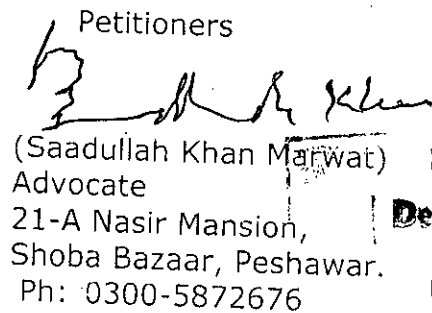 Petitioners
(Saadullah Khan Marwat)
Advocate
21-A Nasir Mansion,
Shoba Bazaar, Peshawar.
Ph: 0300-5872676